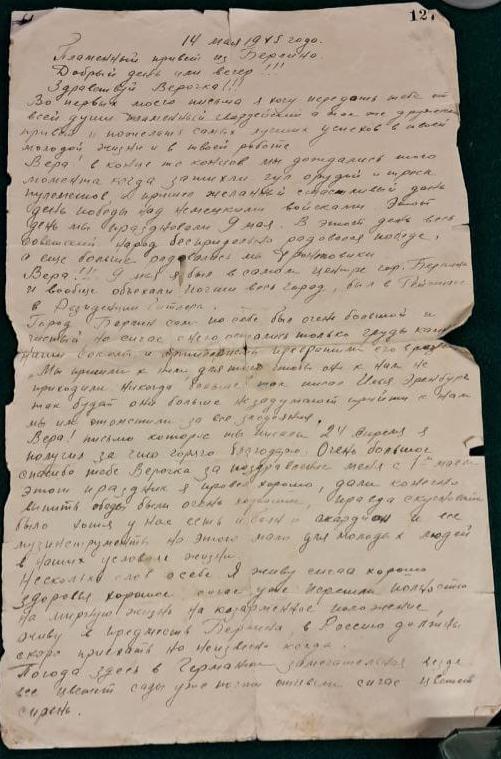 12.
14 мая 1945 года.
Пламенный привет из Берлина.
Добрый день или вечер!!!
Здравствуй Верочка!!!
Во первых моего письма я хочу передать тебе от
всей души пламенный гвардейский а так же дружеский
привет и пожелать самых лучших успехов в твоей
молодой жизни и в твоей работе
Вера! в конце концов мы дождались того
момента когда замихли гул орудий и треск
пулеметов и пришел желанный счастливый день
день победы над немецкими войсками Этот
день мы праздновали 9 мая. В этот день весь
Советский народ беспредельно радовался победе,
а еще больше радовались мы фронтовики
Вера!!! 9 мая я был в самом центре гор. Берлина
и вообще объехали почти весь город, был в Рейхстаге
в Резиденции Гитлера.
Город Берлин сам по себе был очень большой и
чистый но сичас с него остались только груды камня
наши и превратили его в
"Мы пришли к ним для того чтобы они к нам не
приходили никогда больше" так писал Илья Эренбург
так будет они больше не задумают прийти к нам
мы им отомстили за все злодеяния.
Вера! письмо которое ты писала 24 апреля я
получил за что горячо благодарю. Очень большое
спасибо тебе Верочка за поздравление меня с 1ым маем
этот праздник я провел хорошо, дали конечно
выпить обеды были очень хорошие, правда скучный
было хотя у нас есть и акардион и все
музинструменты но этого мало для молодых людей
в наших условиях жизни.
Несколько слов о себе Я живу сичас хорошо
здоровье хорошее сичас уже перешли полностью
на мирную жизнь на казарменное положение,
живу в предместь Берлина, в Россию должны
скоро приехать но неизвесно когда.
Погода здесь в Германии замечательная везде
все цветет сады уже почти отцвели сичас цветет
сирень.